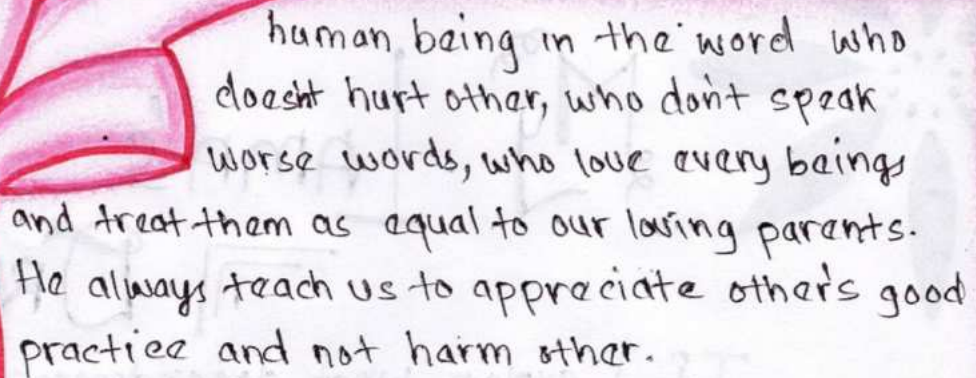 human being in the word who
doesnt hurt other, who don't speak
worse words, who love every beings
and treat them as equal to our loving parents.
He always teach us to appreciate other's good
practice and not harm other.